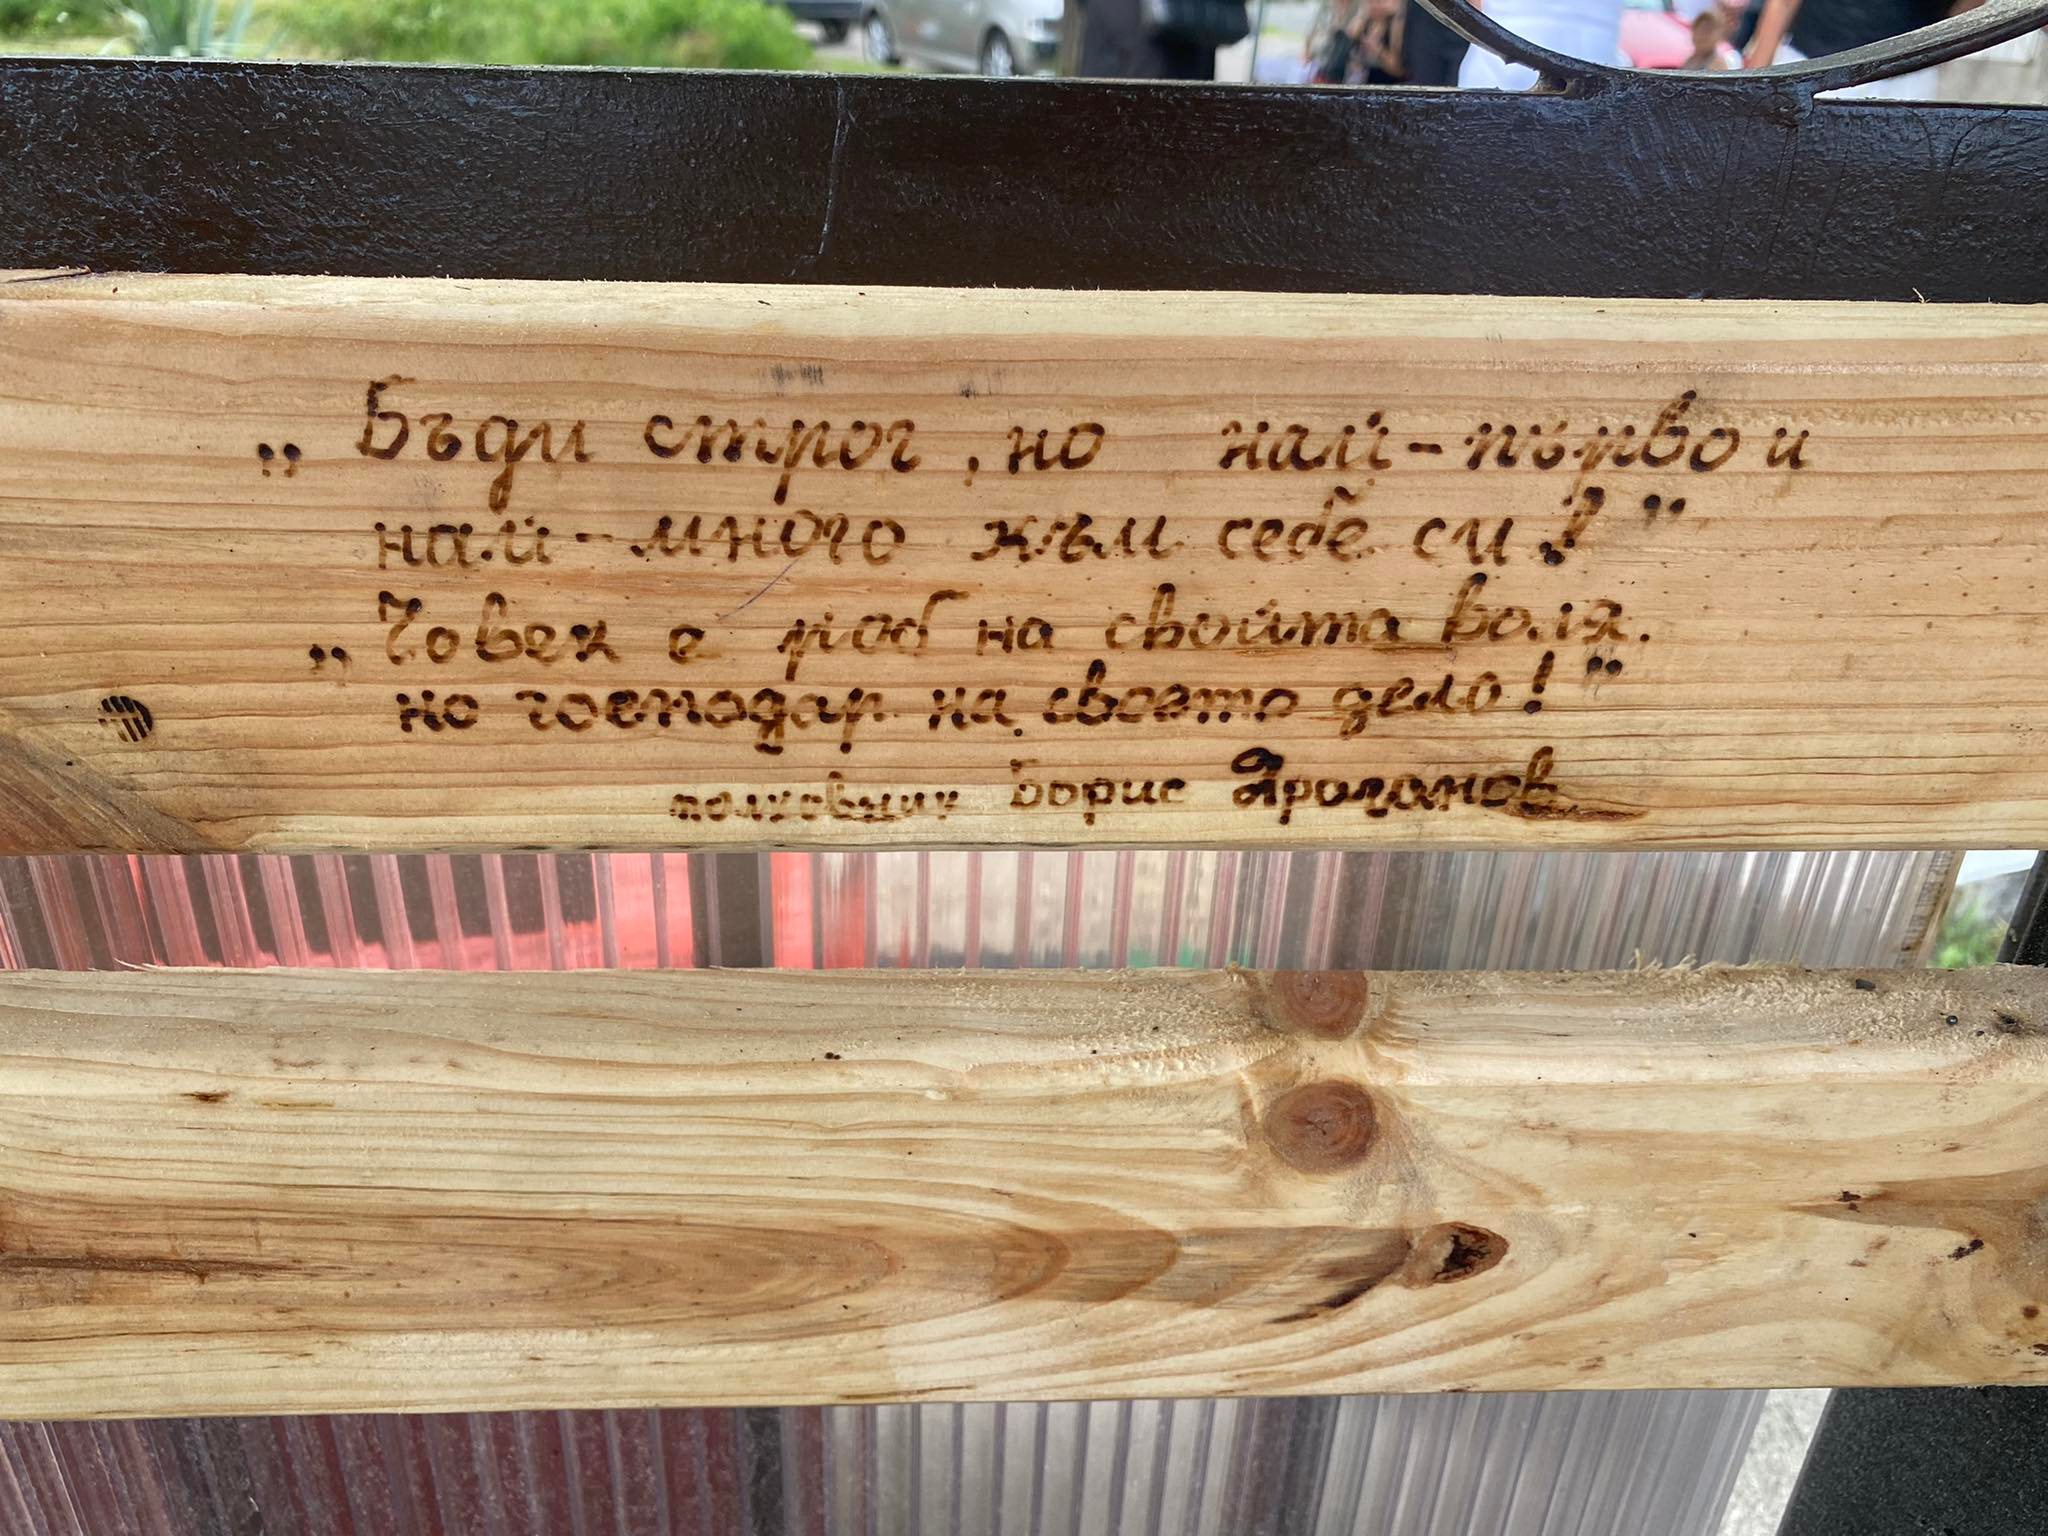 „Бъди строг, но най-първо и
най-много към себе си!"
„Човек е роб на своята воля,
но господар на своето дело!"
полковник Борис Дрогзанов